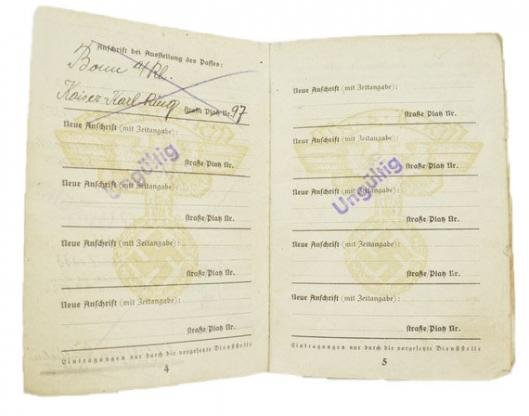 Anschrift bei Ausstellung des Passes:
Bonn a/Rh.
Kaiser Karl Ring
Straße Platz Nr. 97
Neue Anschrift (mit Zeitangabe):
Straße/Platz Nr.
Ungültig
Neue Anschrift (mit Zeitangabe):
Straße/Platz Nr.
Neue Anschrift (mit Zeitangabe):
Straße/Platz Nr.
Neue Anschrift (mit Zeitangabe):
Straße/Platz Nr.
Eintragungen nur durch die vorgesetzte Dienststelle
4
Neue Anschrift (mit Zeitangabe):
Straße Platz Nr.
Neue Anschrift (mit Zeitangabe):
Straße/Platz Nr.
Ungültig
Neue Anschrift (mit Zeitangabe):
Straße/Platz Nr.
Neue Anschrift (mit Zeitangabe):
Straße/Platz Nr.
Neue Anschrift (mit Zeitangabe):
Straße/Platz Nr.
Eintragungen nur durch die vorgesetzte Dienststelle
5